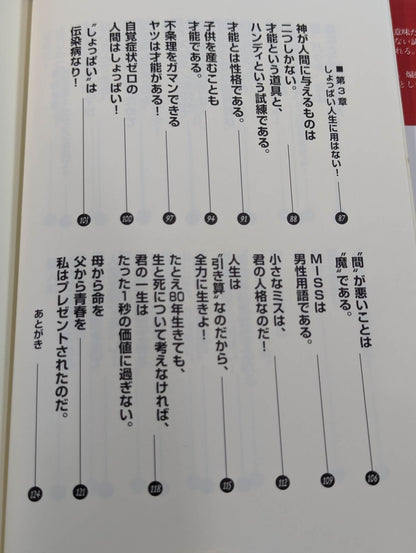 ■第3章
しょっぱい人生に用はない！
87
神が人間に与えるものは
二つしかない。
才能という道具と、
ハンディという試練である。
88
才能とは性格である。
91
子供を産むことも
才能である。
94
不条理をガマンできる
ヤツは才能がある！
97
自覚症状ゼロの
人間はしょっぱい！
100
“しょっぱい”は
伝染病なり！
103
“間”が悪いことは
“魔”である。
106
MISSは
男性用語である。
109
小さなミスは、
君の人格なのだ！
112
人生は
“引き算”なのだから、
全力に生きよ！
115
たとえ80年生きても、
生と死について考えなければ、
君の一生は
たった1秒の価値に過ぎない。
118
母から命を
父から青春を
私はプレゼントされたのだ。
121
あとがき
124
意味だ
ない試
れる。